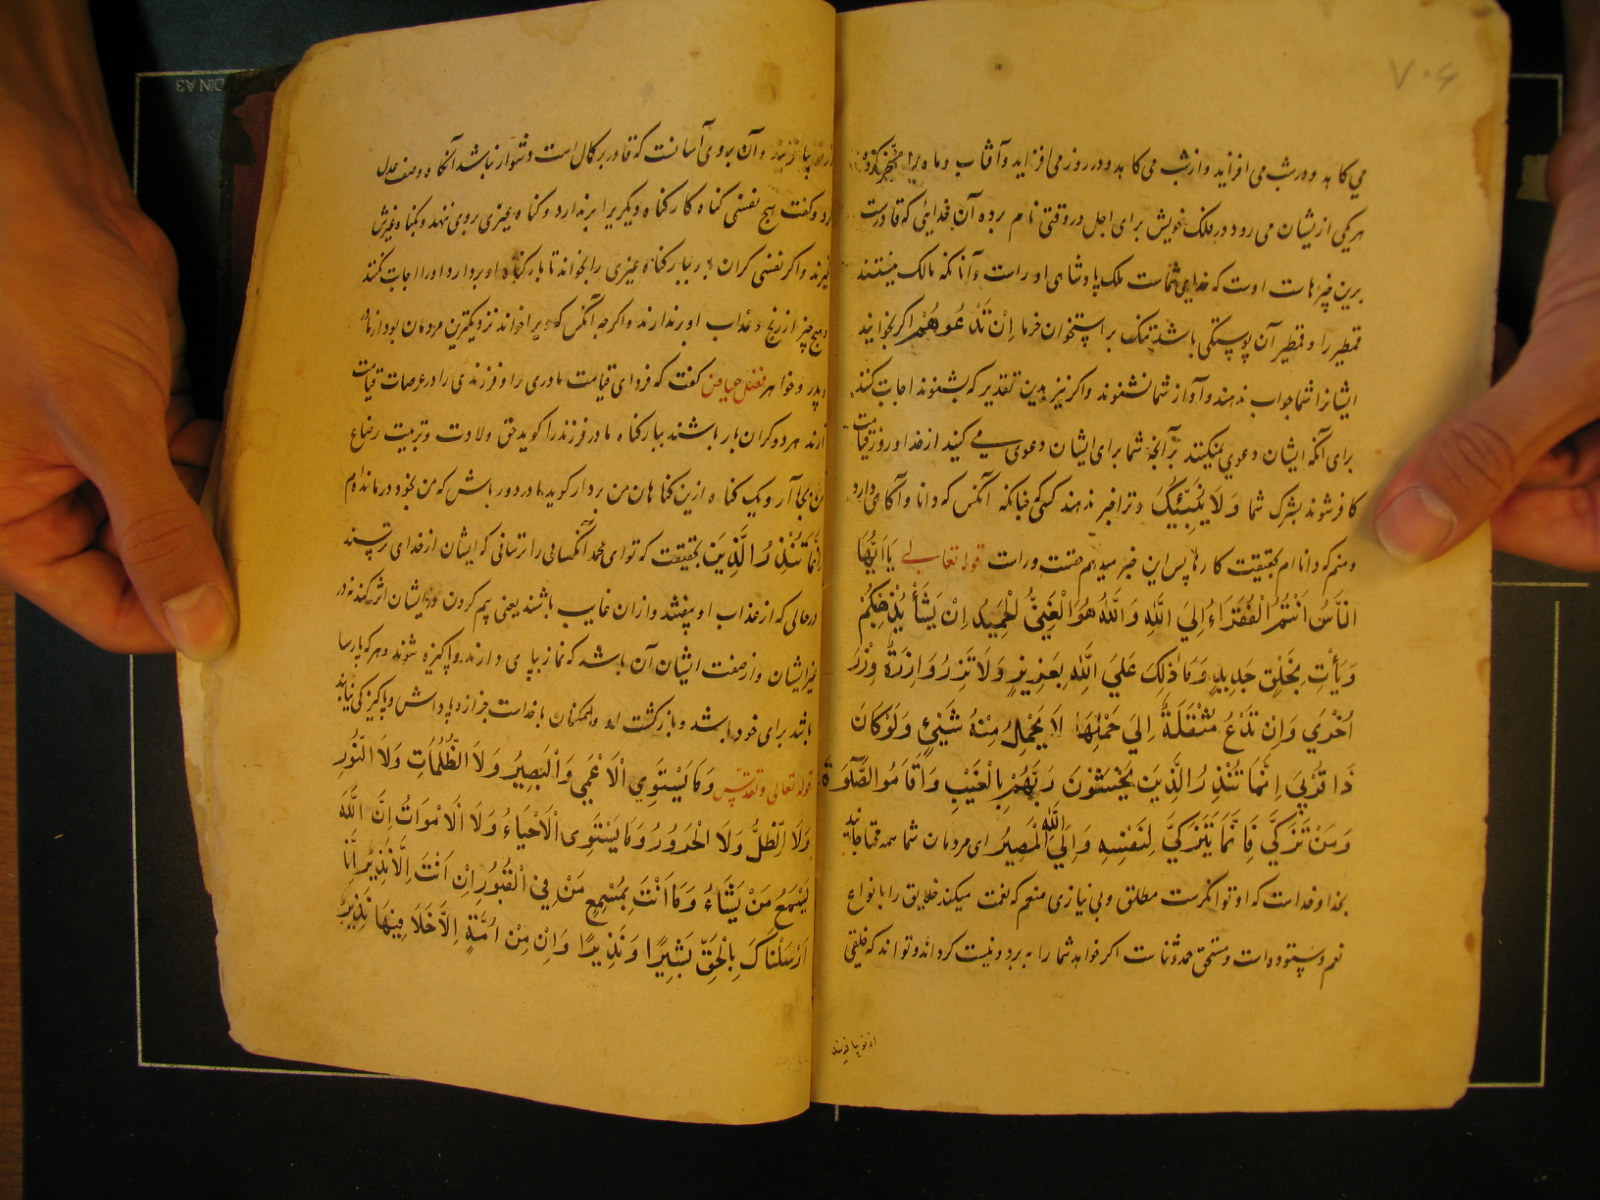 ۷۰۶
می کاهد و در شب می افزاید و از شب می کاهد و در روز می افزاید و آفتاب و ماه را مسخر کرده
هر یکی ازیشان می رود در فلک خویش برای اجل و وقتی نام برده آن خدایی که قادرست
برین چیزهاست اوست که خدای شماست ملک پادشاهی اوراست و آنانکه مالک نیستند
قمطیر را و قمطیر آن پوستکی باشد تنک بر استخوان خرما اِنْ تَدْعُوهُمْ اکر بخوانید
ایشانرا شما جواب ندهند و آواز شما نشنوند و اکر نیز بدین تقدیر که بشنوند اجابت نکنند
برای آنکه ایشان دعوی نمیکنند بر آنچه شما برای ایشان دعوی می کنید از خدا و روز قیامت
کافر شوند بشرک شما وَلَا یُنَبِّئُکَ و ترا خبر ندهند کسی چنانکه آنکس که دانا و آکاهی دارد
و منم که دانا ام بحقیقت کارها پس این خبر میدهم قوله تعالی یَا اَیُّهَا
النَّاسُ اَنْتُمُ الْفُقَرَاءُ اِلَی اللّٰهِ وَاللّٰهُ هُوَ الْغَنِیُّ الْحَمِیدُ اِنْ یَشَأْ یُذْهِبْکُمْ
وَیَأْتِ بِخَلْقٍ جَدِیدٍ وَمَا ذٰلِکَ عَلَی اللّٰهِ بِعَزِیزٍ وَلَا تَزِرُ وَازِرَةٌ وِزْرَ
اُخْرٰی وَاِنْ تَدْعُ مُثْقَلَةٌ اِلٰی حِمْلِهَا لَا یُحْمَلْ مِنْهُ شَیْئٌ وَلَوْ کَانَ
ذَا قُرْبٰی اِنَّمَا تُنْذِرُ الَّذِینَ یَخْشَوْنَ رَبَّهُمْ بِالْغَیْبِ وَاَقَامُوا الصَّلٰوةَ
وَمَنْ تَزَکّٰی فَاِنَّمَا یَتَزَکّٰی لِنَفْسِهِ وَاِلَی اللّٰهِ الْمَصِیرُ ای مردمان شما همه محتاجانید
بخدا و خداست که او توانکرست مطلق و بی نیازی منعم که نعمت میکند خلایق را بانواع
نعم و ستوده است و مستحق حمد و ثناست اکر خواهد شما را ببرد و نیست کرداند و تواند که خلقی
از نو بیافریند
و آن بر وی آسانست که قادر بر کمال است و دشوار نباشد آنکاه وصف عدل
کرد و کفت هیچ نفسی کناه کار کناه دیکریرا برندارد و کناه غیری بروی ننهد و بکناه غیرش
نکیرند و اکر نفسی کران بار ببار کناه غیری را بخواند تا بار کناه او بردارد او را اجابت نکند
و هیچ چیز از رنج و عذاب او برندارند و اکرچه آنکس که ویرا خواند نزدیکترین مردمان بود از مادر
و پدر و خواهر فضیل عیاض کفت که فردای قیامت مادری را و فرزندی را در عرصات قیامت
آرند هر دو کران بار باشند ببار کناه مادر فرزند را کوید حق ولادت و تربیت رضاع
من بجا آر و یک کناه ازین کناهان من بردار کوید مادر دور باش که من بخود درمانده ام
اِنَّمَا تُنْذِرُ الَّذِینَ بحقیقت که تو ای محمد آنکسانی را ترسانی که ایشان از خدای ترسند
در حالی که از عذاب او میفتند و ازان غایب باشند یعنی بیم کردن تو در ایشان اثر کند نه در
غیر ایشان و از صفت ایشان آن باشد که نماز بپای دارند و پاکیزه شوند و هر که پارسا
باشد برای خود باشد و بازکشت او و همکنان با خداست جزا دهد پاداش و پاکیزکی نیابد
قوله تعالی و تقدس وَمَا یَسْتَوِی الْاَعْمٰی وَالْبَصِیرُ وَلَا الظُّلُمَاتُ وَلَا النُّورُ
وَلَا الظِّلُّ وَلَا الْحَرُورُ وَمَا یَسْتَوِی الْاَحْیَاءُ وَلَا الْاَمْوَاتُ اِنَّ اللّٰهَ
یُسْمِعُ مَنْ یَشَاءُ وَمَا اَنْتَ بِمُسْمِعٍ مَنْ فِی الْقُبُورِ اِنْ اَنْتَ اِلَّا نَذِیرٌ اِنَّا
اَرْسَلْنَاکَ بِالْحَقِّ بَشِیرًا وَنَذِیرًا وَاِنْ مِنْ اُمَّةٍ اِلَّا خَلَا فِیهَا نَذِیرٌ